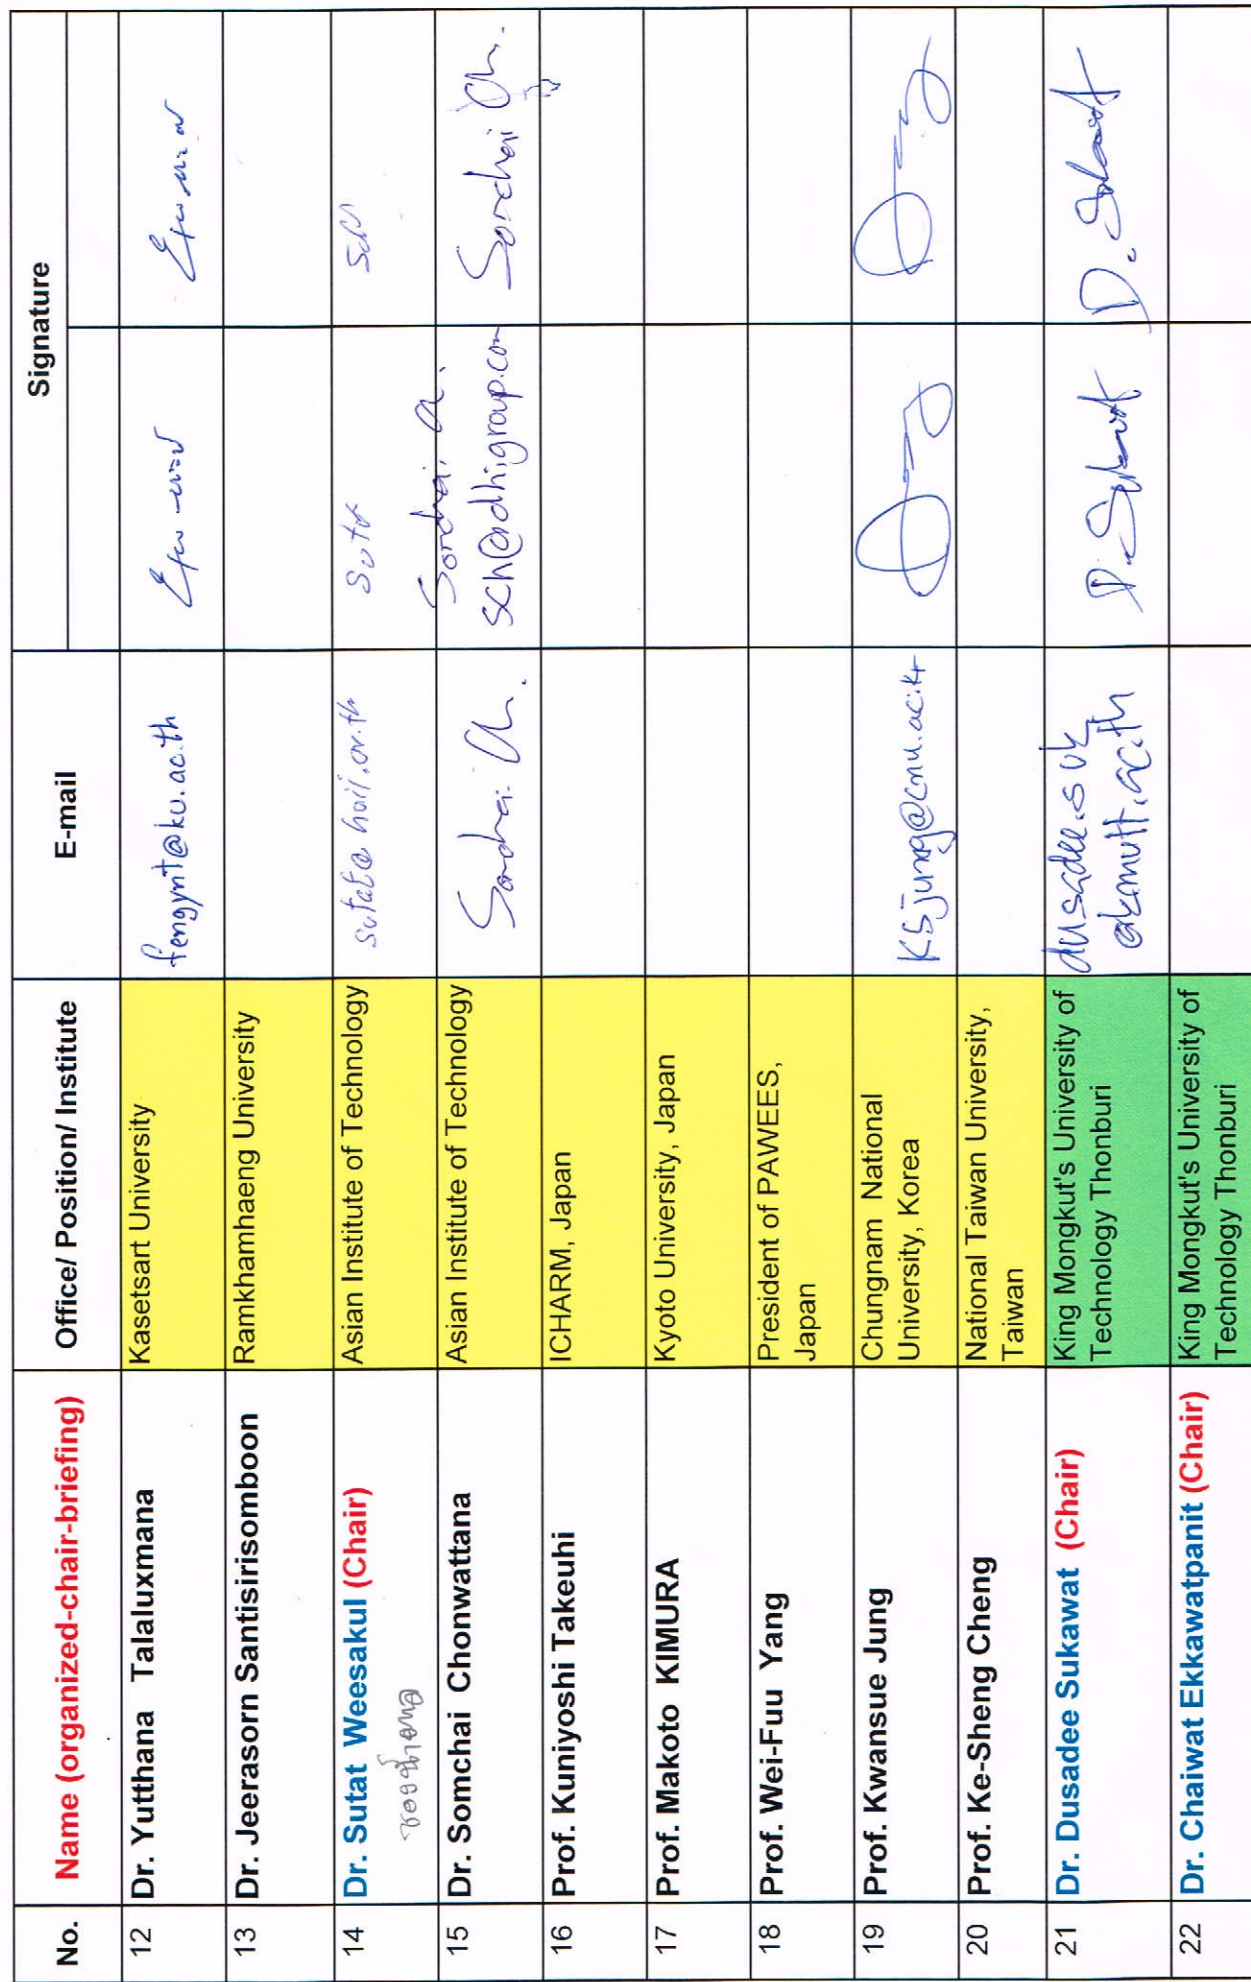 No. Name (organized-chair-briefing) Office/ Position/ Institute E-mail Signature
12 Dr. Yutthana Talaluxmana Kasetsart University fengynt@ku.ac.th
13 Dr. Jeerasorn Santisirisomboon Ramkhamhaeng University
14 Dr. Sutat Weesakul (Chair) Asian Institute of Technology sutat@haii.or.th Sutat
15 Dr. Somchai Chonwattana Asian Institute of Technology Somchai Ch. Somchai Ch. Somchai Ch.
sch@dhigroup.com
16 Prof. Kuniyoshi Takeuhi ICHARM, Japan
17 Prof. Makoto KIMURA Kyoto University, Japan
18 Prof. Wei-Fuu Yang President of PAWEES,
Japan
19 Prof. Kwansue Jung Chungnam National
University, Korea ksjung@cnu.ac.kr
20 Prof. Ke-Sheng Cheng National Taiwan University,
Taiwan
21 Dr. Dusadee Sukawat (Chair) King Mongkut's University of
Technology Thonburi dusadee.suk
@kmutt.ac.th D. Sukawat D. Sukawat
22 Dr. Chaiwat Ekkawatpanit (Chair) King Mongkut's University of
Technology Thonburi